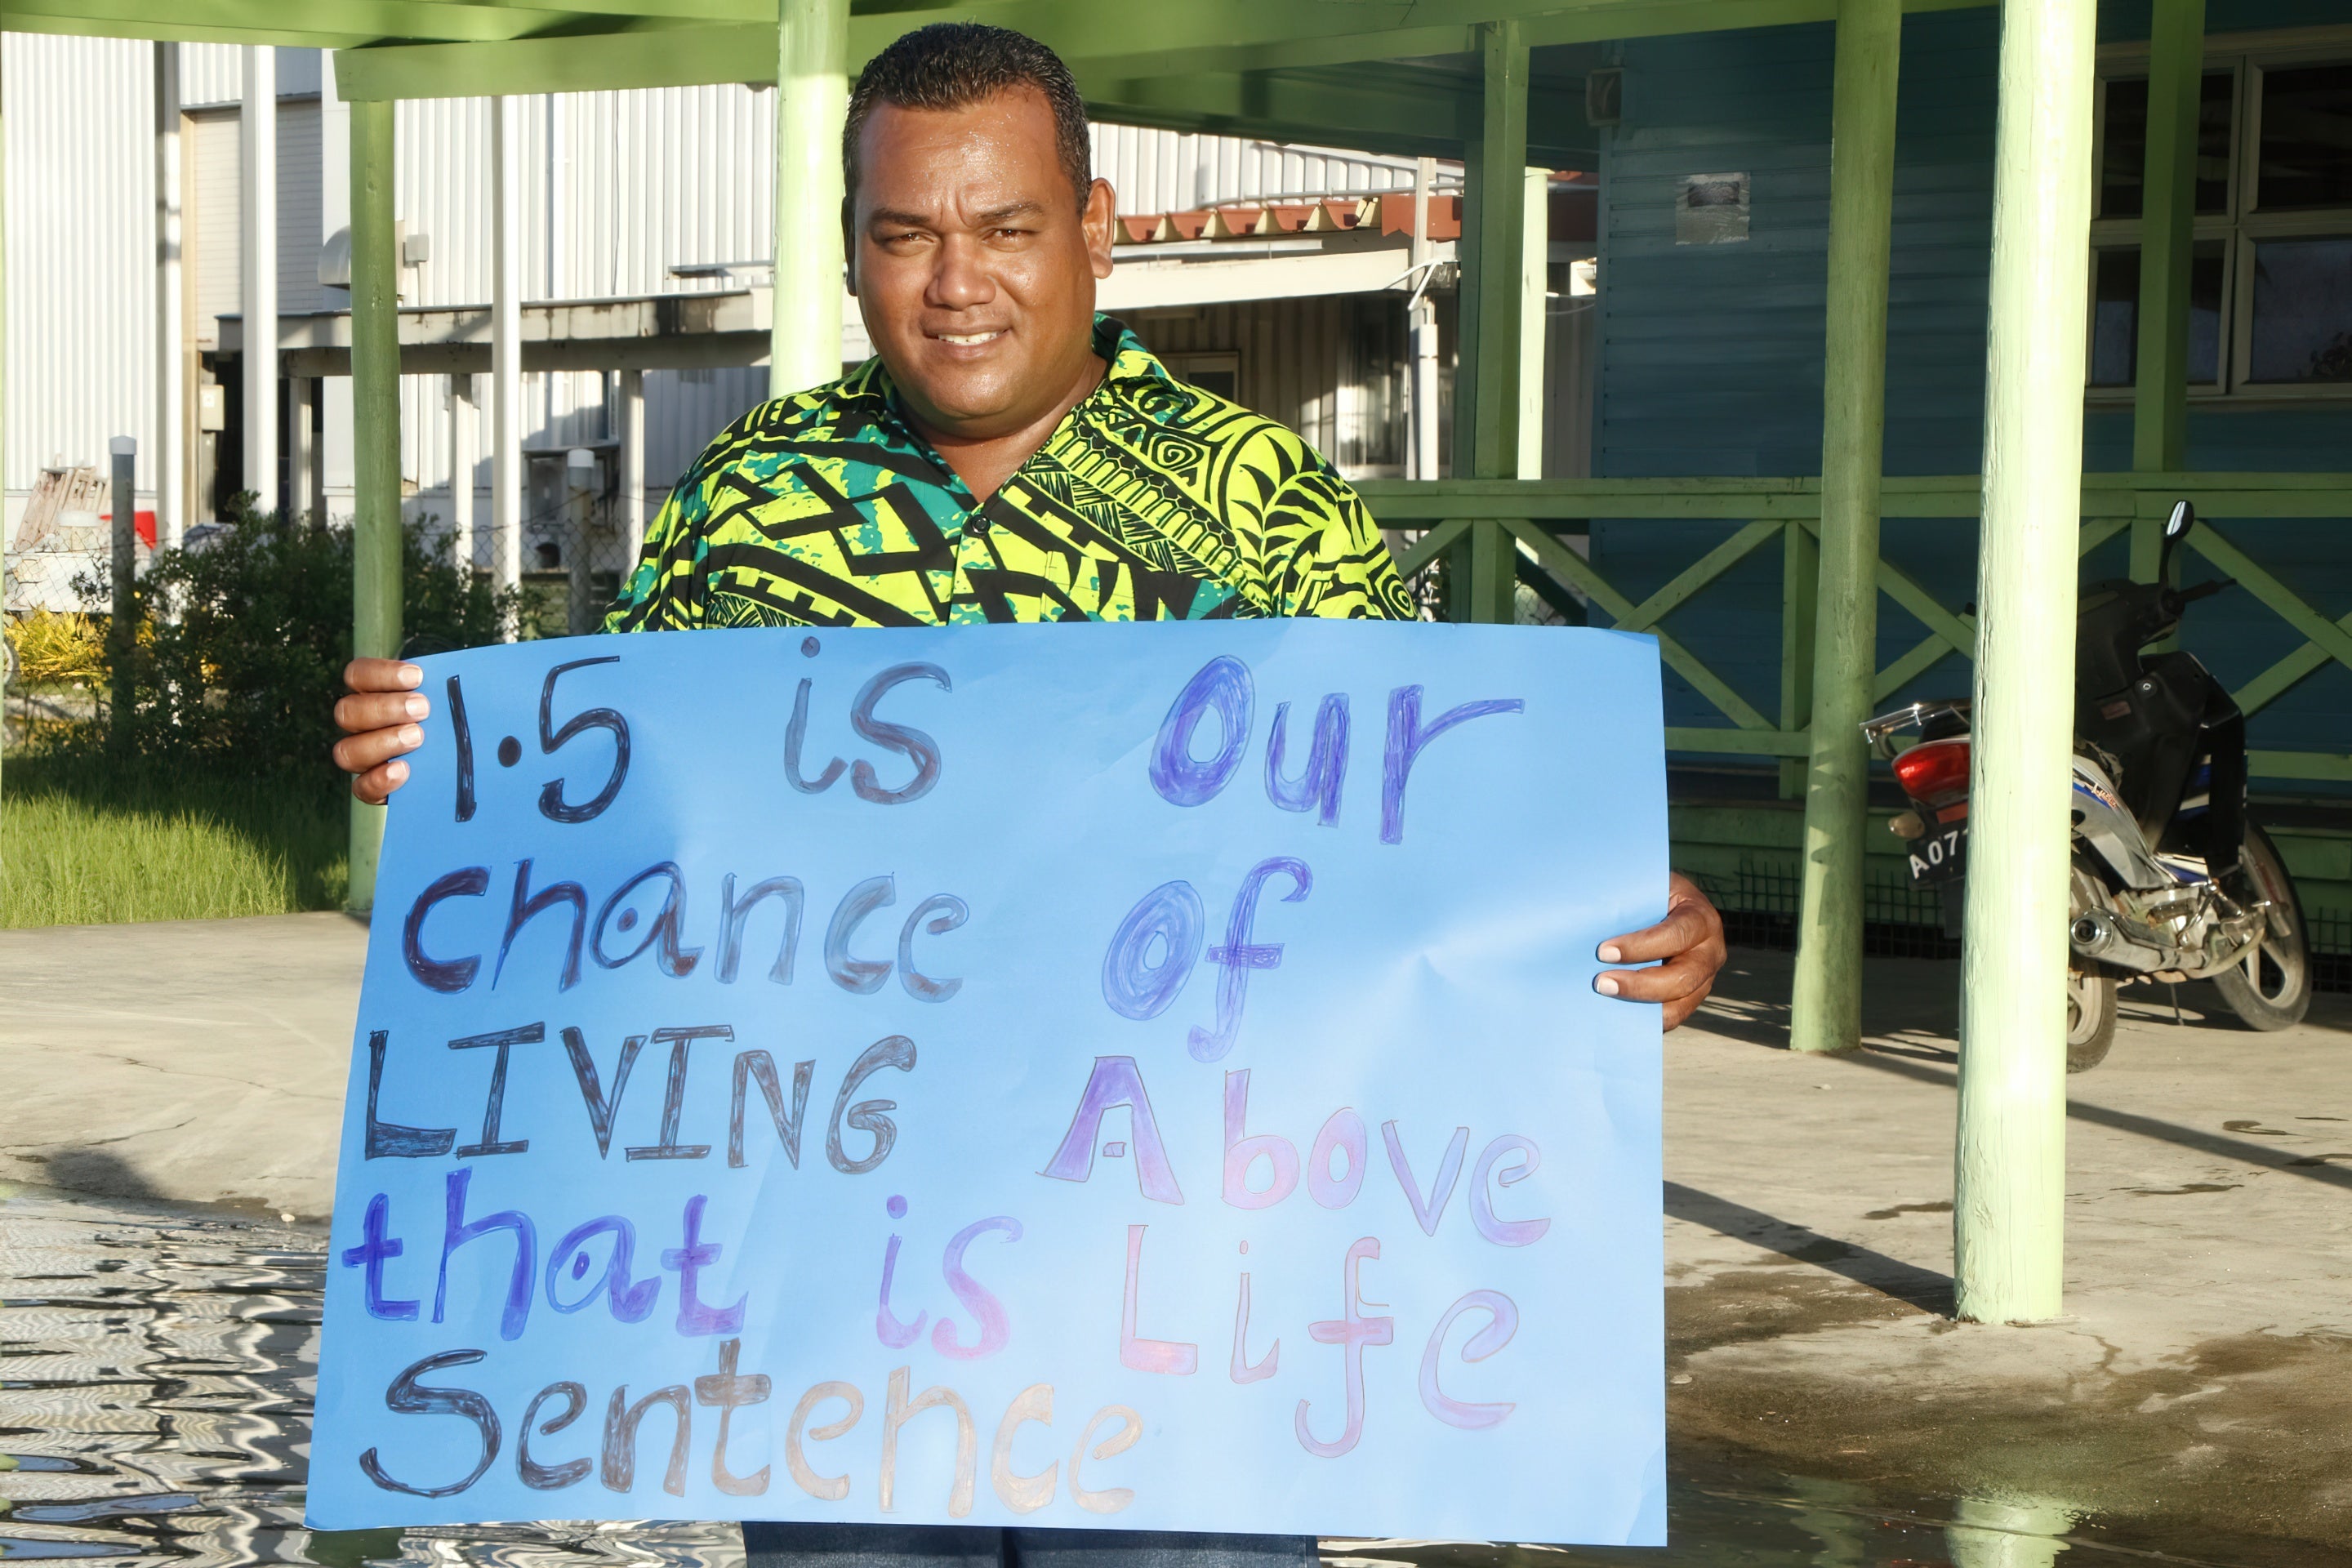 1.5 is Our
chance of
LIVING Above
that is Life
Sentence
A07